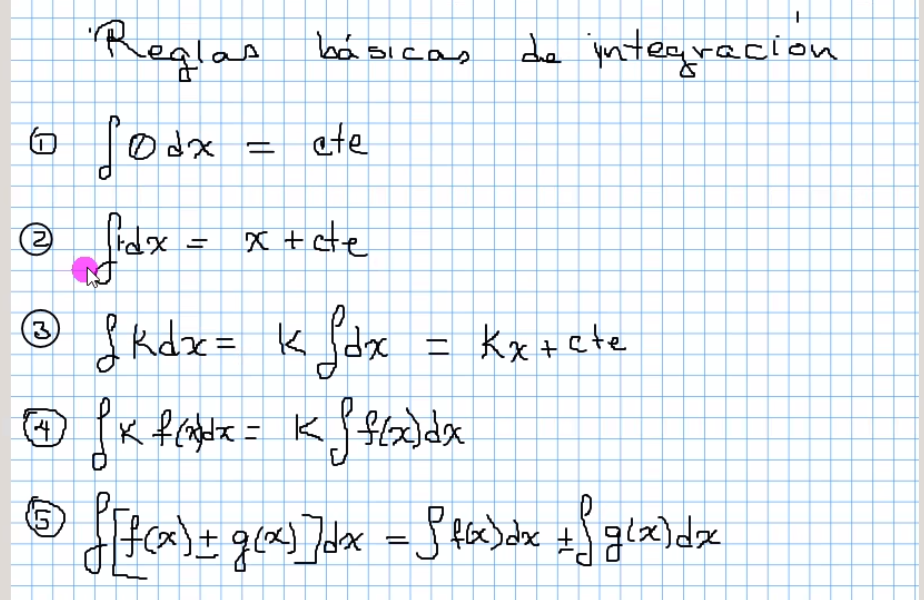 Reglas básicas de integración
① ∫0dx = cte
② ∫1dx = x + cte
③ ∫kdx = k∫dx = kx + cte
④ ∫k f(x)dx = k∫f(x)dx
⑤ ∫[f(x) ± g(x)]dx = ∫f(x)dx ± ∫g(x)dx